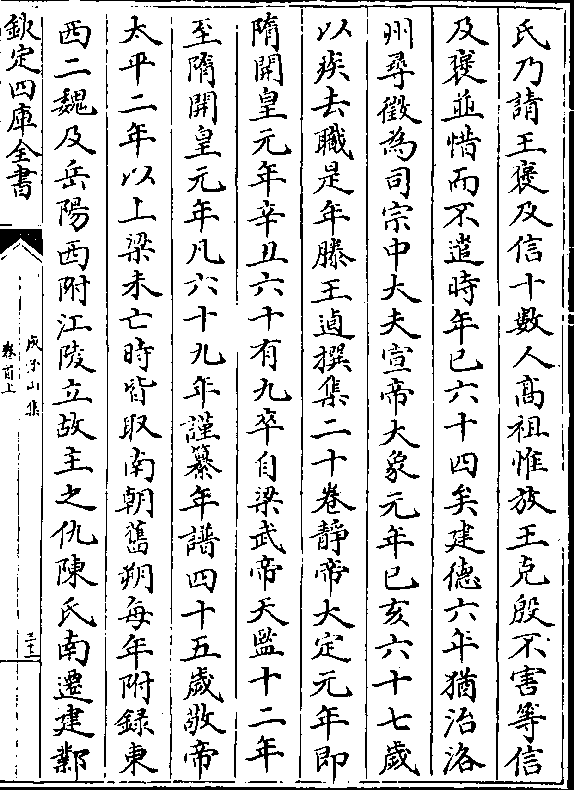 氏乃請王褒及信十數人髙祖惟放王克殷不害等信
及褒並惜而不遣時年已六十四矣建德六年猶治洛
州尋徵為司宗中大夫宣帝大象元年已亥六十七歲
以疾去職是年滕王逌撰集二十卷靜帝大定元年即
隋開皇元年辛丑六十有九卒自梁武帝天監十二年
至隋開皇元年凡六十九年謹纂年譜四十五歲敬帝
太平二年以上梁未亡時皆取南朝舊朔每年附録東
西二魏及岳陽西附江陵立故主之仇陳氏南遷建鄴
欽定四庫全書
庾子山集
卷首上